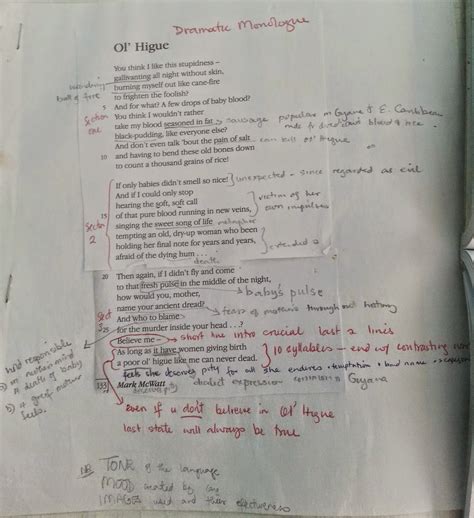 Dramatic Monologue
Ol' Higue
You think I like this stupidness –
gallivanting all night without skin,
burning myself out like cane-fire
to frighten the foolish?
ball of fire
5 And for what? A few drops of baby blood?
You think I wouldn't rather
take my blood seasoned in fat
→ sausage popular in Guyana & E. Caribbean
black-pudding, like everyone else?
made fr blood and rice.
And don't even talk 'bout the pain of salt
can kill Ol' Higue
10 and having to bend these old bones down
to count a thousand grains of rice!
Section one
If only babies didn't smell so nice!
unexpected – since regarded as evil
And if I could only stop
hearing the soft, soft call
victim of her
15 of that pure blood running in new veins,
own impulses
singing the sweet song of life
metaphor
tempting an old, dry-up woman who been
holding her final note for years and years,
extended
afraid of the dying hum . . .
death
Section 2
20 Then again, if I didn't fly and come
to that fresh pulse in the middle of the night,
how would you, mother,
baby's pulse
name your ancient dread?
fears of mothers throughout history
And who to blame
25 for the murder inside your head . . .?
Believe me –
short line intro crucial last 2 lines
As long as it have women giving birth
10 syllables – end w/ contrasting
a poor ol' higue like me can never dead.
feels she deserves pity for all she endures
Mark McWatt
dialect expression
Guyana
133
deserves pity
held responsible
a) in
death of baby
b) 4 grief mother
feels.
Even if u don't believe in Ol' Higue
last state will always be true
NB TONE of the language
MOOD created by
IMAGES used and their effectiveness